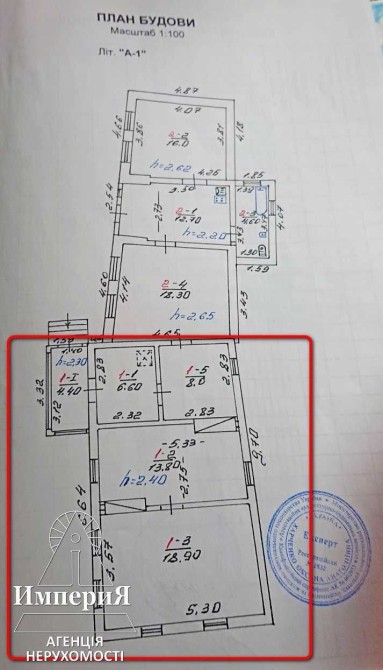 ПЛАН БУДОВИ
Масштаб 1:100
Літ. "А-1"
4.87
4.07
4.66
3.86
2-2
16.0
3.81
4.18
h=2.62
4.25
1.85
3.30
2.54
2.73
2-1
12.70
h=2.20
3.43
4.60
4.07
1.30
1.59
4.60
4.14
2-4
18.30
h=2.65
3.43
4.65
1.40
h=2.30
1-I
4.40
3.32
3.12
2.83
1-1
6.60
2.32
1-5
8.0
2.83
2.83
9.70
5.33
1-2
13.80
h=2.40
2.75
3.57
1-3
18.90
5.30
Експерт
ИмпериЯ
АГЕНЦІЯ
НЕРУХОМОСТІ